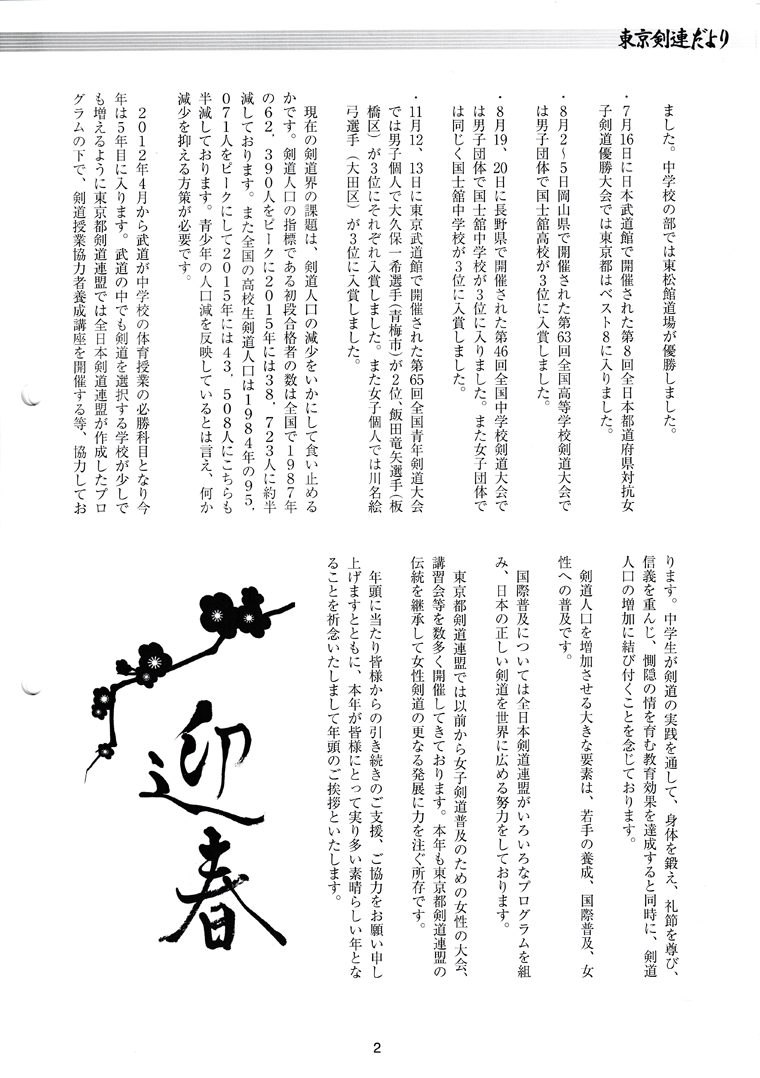 東京剣連だより
ました。中学校の部では東松館道場が優勝しました。
・7月16日に日本武道館で開催された第8回全日本都道府県対抗女
子剣道優勝大会では東京都はベスト8に入りました。
・8月2〜5日岡山県で開催された第63回全国高等学校剣道大会で
は男子団体で国士舘高校が3位に入賞しました。
・8月19、20日に長野県で開催された第46回全国中学校剣道大会で
は男子団体で国士舘中学校が3位に入りました。また女子団体で
は同じく国士舘中学校が3位に入賞しました。
・11月12、13日に東京武道館で開催された第65回全国青年剣道大会
では男子個人で大久保一希選手（青梅市）が2位、飯田竜矢選手（板
橋区）が3位にそれぞれ入賞しました。また女子個人では川名絵
弓選手（大田区）が3位に入賞しました。
現在の剣道界の課題は、剣道人口の減少をいかにして食い止める
かです。剣道人口の指標である初段合格者の数は全国で1987年
の62，390人をピークに2015年には38，723人に約半
減しております。また全国の高校生剣道人口は1984年の95，
071人をピークにして2015年には43，508人にこちらも
半減しております。青少年の人口減を反映しているとは言え、何か
減少を抑える方策が必要です。
2012年4月から武道が中学校の体育授業の必勝科目となり今
年は5年目に入ります。武道の中でも剣道を選択する学校が少しで
も増えるように東京都剣道連盟では全日本剣道連盟が作成したプロ
グラムの下で、剣道授業協力者養成講座を開催する等、協力してお
ります。中学生が剣道の実践を通して、身体を鍛え、礼節を尊び、
信義を重んじ、惻隠の情を育む教育効果を達成すると同時に、剣道
人口の増加に結び付くことを念じております。
剣道人口を増加させる大きな要素は、若手の養成、国際普及、女
性への普及です。
国際普及については全日本剣道連盟がいろいろなプログラムを組
み、日本の正しい剣道を世界に広める努力をしております。
東京都剣道連盟では以前から女子剣道普及のための女性の大会、
講習会等を数多く開催してきております。本年も東京都剣道連盟の
伝統を継承して女性剣道の更なる発展に力を注ぐ所存です。
年頭に当たり皆様からの引き続きのご支援、ご協力をお願い申し
上げますとともに、本年が皆様にとって実り多い素晴らしい年とな
ることを祈念いたしまして年頭のご挨拶といたします。
迎春
2